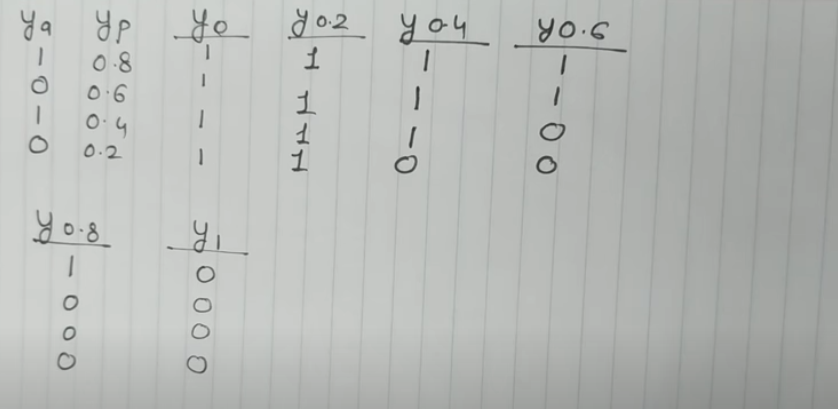 ya yp y0 y0.2 y0.4 y0.6
1 0.8 1 1 1 1
0 0.6 1 1 1 1
1 0.4 1 1 1 0
0 0.2 1 1 0 0
y0.8 y1
1 0
0 0
0 0
0 0